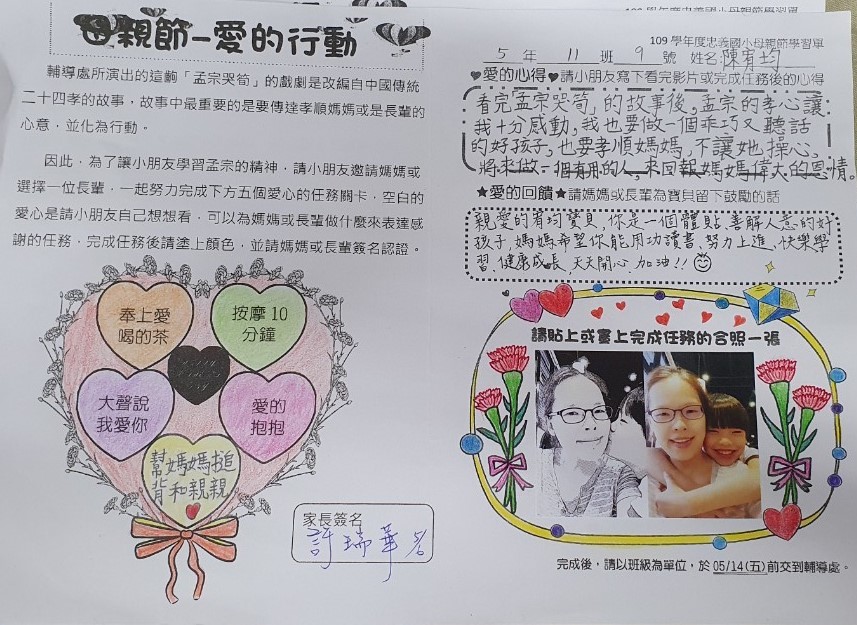 母親節－愛的行動
輔導處所演出的這齣「孟宗哭筍」的戲劇是改編自中國傳統
二十四孝的故事，故事中最重要的是要傳達孝順媽媽或是長輩的
心意，並化為行動。
因此，為了讓小朋友學習孟宗的精神，請小朋友邀請媽媽或
選擇一位長輩，一起努力完成下方五個愛心的任務關卡，空白的
愛心是請小朋友自己想想看，可以為媽媽或長輩做什麼來表達感
謝的任務，完成任務後請塗上顏色，並請媽媽或長輩簽名認證。
奉上愛
喝的茶
按摩 10
分鐘
大聲說
我愛你
愛的
抱抱
幫媽媽搥
背和親親
家長簽名
許瑞華
109 學年度忠義國小母親節學習單
5 年 11 班 9 號 姓名 陳宥均
♥愛的心得♥請小朋友寫下看完影片或完成任務後的心得
看完「孟宗哭筍」的故事後，孟宗的孝心讓
我十分感動，我也要做一個乖巧又聽話
的好孩子，也要孝順媽媽，不讓她操心，
將來做一個有用的人，來回報媽媽偉大的恩情。
★愛的回饋★請媽媽或長輩為寶貝留下鼓勵的話
親愛的宥均寶貝，你是一個體貼、善解人意的好
孩子，媽媽希望你能用功讀書、努力上進、快樂學
習、健康成長、天天開心，加油！！
請貼上或畫上完成任務的合照一張
完成後，請以班級為單位，於 05/14(五)前交到輔導處。